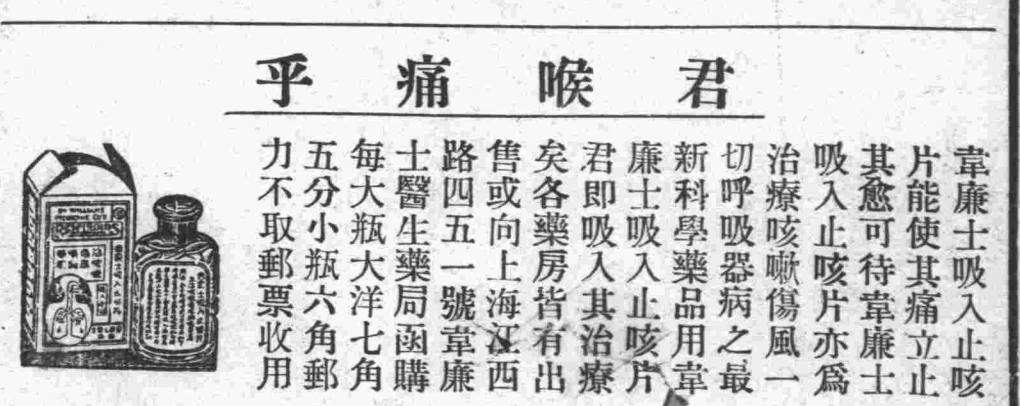 君喉痛乎
韋廉士吸入止咳
片能使其痛立止
其愈可待韋廉士
吸入止咳片亦為
治療咳嗽傷風一
切呼吸器病之最
新科學藥品用韋
廉士吸入止咳片
君即吸入其治療
矣各藥房皆有出
售或向上海江西
路四五一號韋廉
士醫生藥局函購
每大瓶大洋七角
五分小瓶六角郵
力不取郵票收用
DR WILLIAMS'